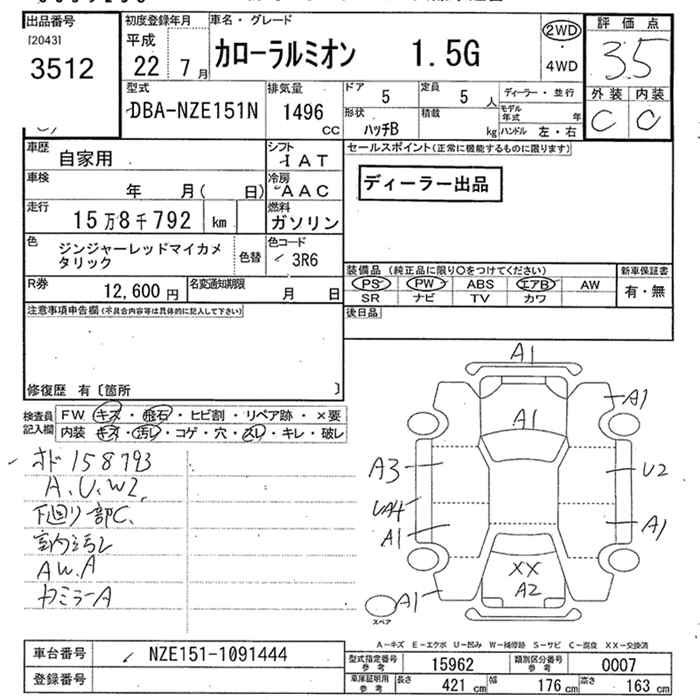 出品番号
[2043]
3512
初度登録年月
平成
22 7月
車名・グレード
カローラルミオン 1.5G
2WD
・
4WD
評価点
3.5
外装 内装
C C
型式
DBA-NZE151N
排気量
1496
CC
ドア
5
定員
5 人
形状
ハッチB
積載
kg
ディーラー・並行
モデル年式 年
ハンドル 左・右
車歴
自家用
シフト
IAT
車検
年 月( 日)
冷房
AAC
走行
15万8千792 km
燃料
ガソリン
色
ジンジャーレッドマイカメタリック
色替
色コード
3R6
R券
12,600 円
名変通知期限
月 日
セールスポイント(正常に機能するものに限ります)
ディーラー出品
装備品 (純正品に限り○をつけてください)
PS PW ABS エアB AW
SR ナビ TV カワ
新車保証書
有・無
後日品
注意事項申告欄(不具合内容等は具体的に記入して下さい)
修復歴 有〔箇所 〕
検査員記入欄
FW キズ・飛石・ヒビ割・リペア跡・×要
内装 キズ・汚レ・コゲ・穴・スレ・キレ・破レ
オド158793
A、U、W2、
下廻り部C、
室内汚レ
AW.A
カミラーA
A1
A1
A1
A3
U2
UA4
A1
A1
XX
A2
A1
スペア
A-キズ E-エクボ U-凹み W-補修跡 S-サビ C-腐食 XX-交換済
車台番号
NZE151-1091444
登録番号
型式指定番号
参考
15962
類別区分番号
参考
0007
車庫証明用
参考
長さ 421 cm
幅 176 cm
高さ 163 cm